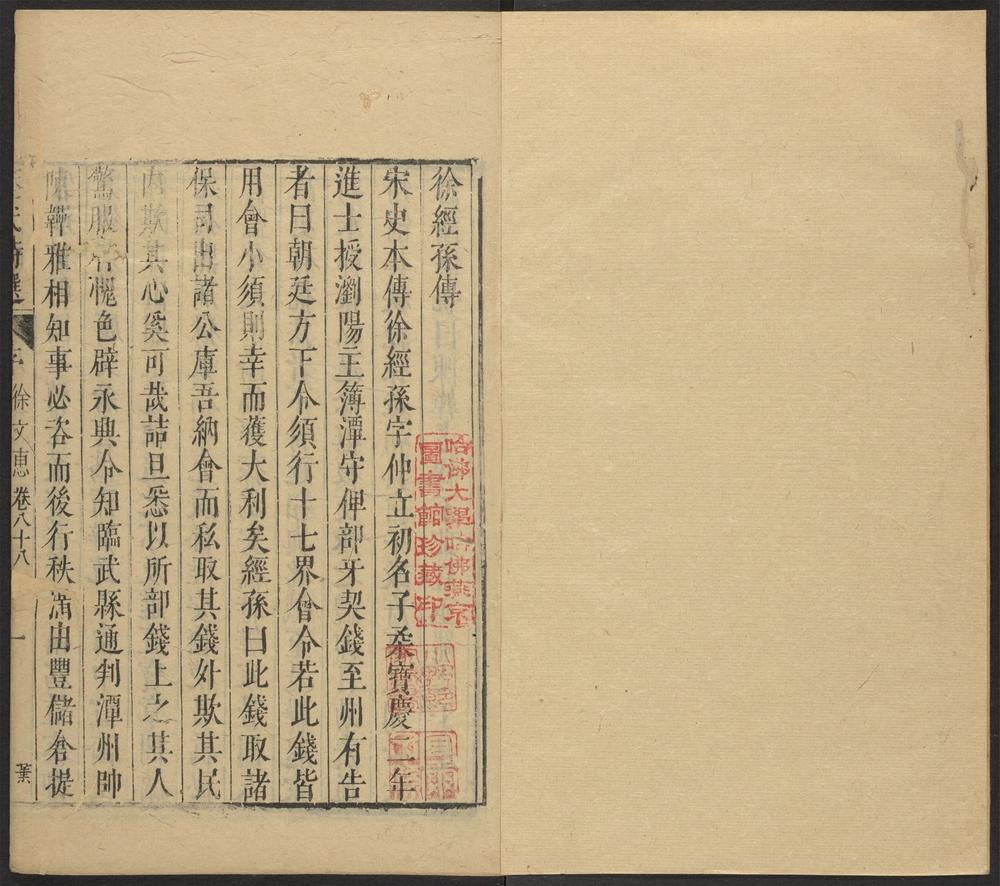 徐經孫傳
宋史本傳徐經孫字仲立初名子柔寶慶二年
進士授瀏陽主簿潭守俾部牙契錢至州有告
者曰朝廷方下令須行十七界會令若此錢皆
用會小須則幸而獲大利矣經孫曰此錢取諸
保司出諸公庫吾納會而私取其錢外欺其民
内欺其心奚可哉詰旦悉以所部錢上之其人
驚服有愧色辟永興令知臨武縣通判潭州帥
陳韡雅相知事必咨而後行秩滿由豐儲倉提
徐文惠 卷八十八 一
葉
哈佛大學哈佛燕京
圖書館珍藏印